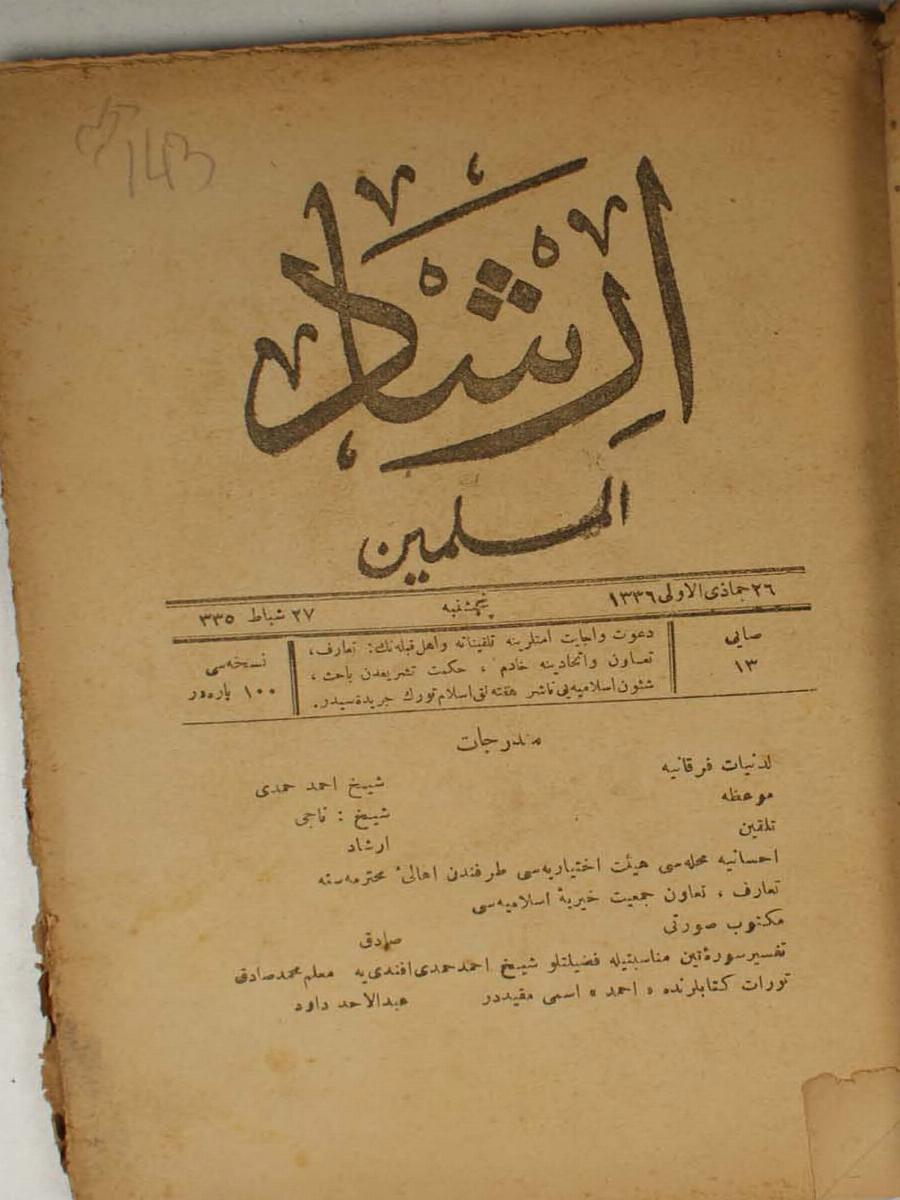 143
ارشاد
المسلمين
٢٦ جماذى الاولى ١٣٣٦ پنجشنبه ٢٧ شباط ٣٣٥
صايى
١٣
دعوت واجابت امتلرينه تلقيناته واهل قبله نك: تعارف،
تعاون واتحادينه خادم، حكمت تشريعدن باحث،
شئون اسلاميه يى ناشر هفته لق اسلام تورك جريدة سيدر.
نسخه سى
١٠٠ پاره در
مندرجات
لدنيات فرقانيه شيخ احمد حمدى
موعظه شيخ : ناجى
تلقين ارشاد
احسانيه محله سى هيئت اختياريه سى طرفندن اهالئ محترمه سنه
تعارف ، تعاون جمعيت خيريۀ اسلاميه سى
مكتوب صورتى صادق
تفسير سورۀ تين مناسبتيله فضيلتلو شيخ احمد حمدى افندى يه معلم محمد صادق
تورات كتابلرنده « احمد » اسمى مقيددر عبدالاحد داود